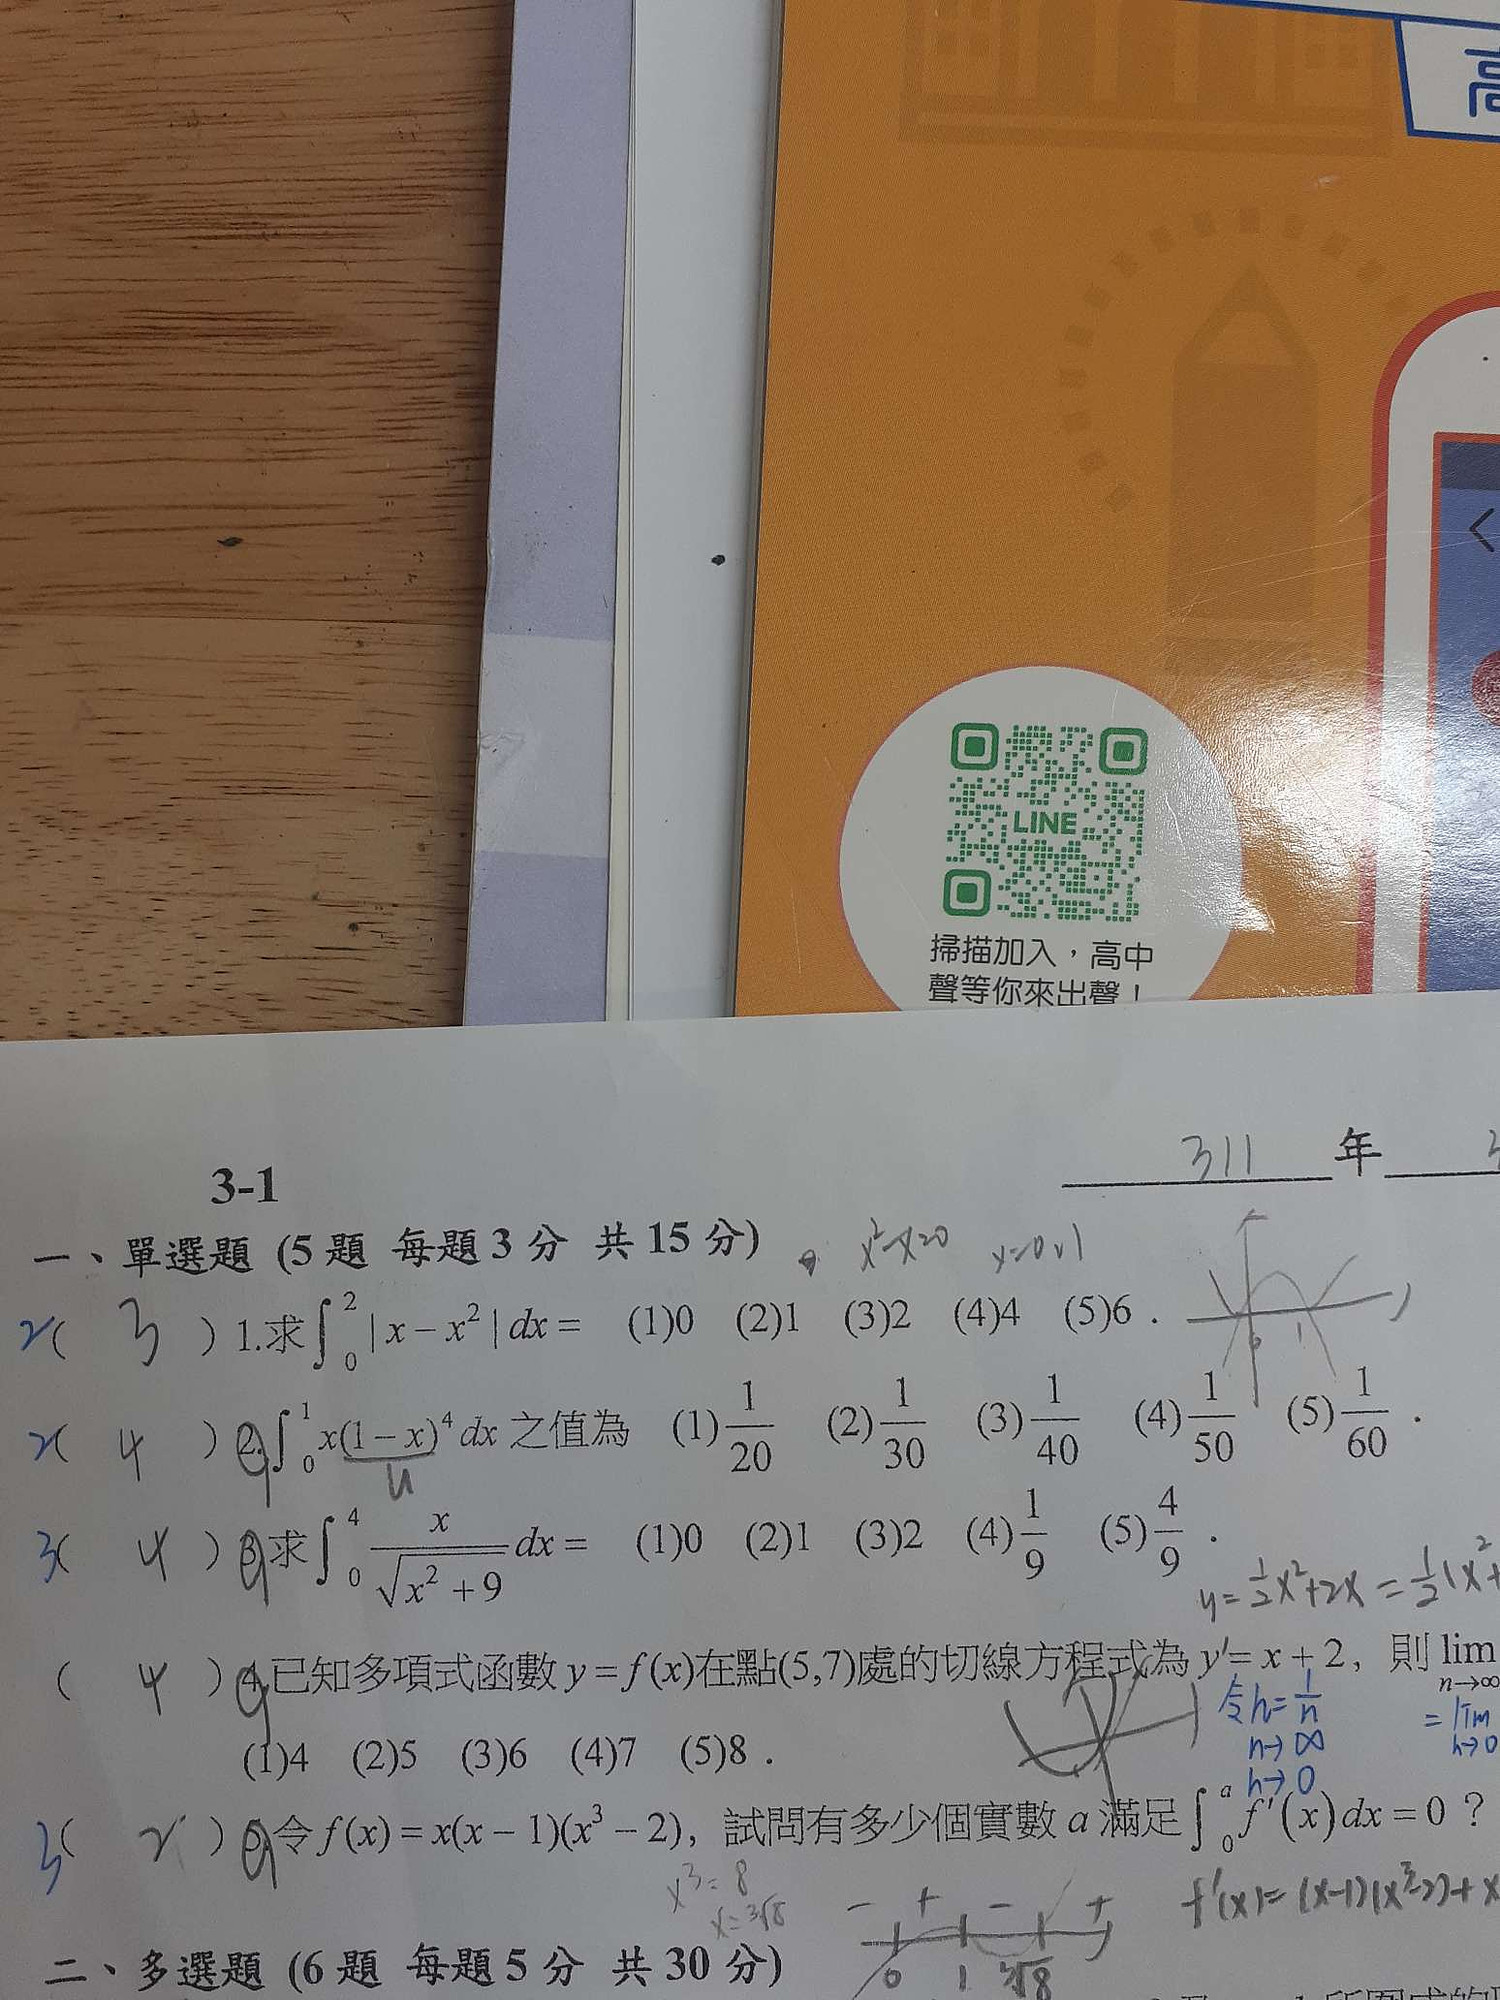 高
LINE
掃描加入，高中
聲等你來出聲！
311 年
3-1
一、單選題 (5題 每題3分 共15分)
x²-x=0 x=0∨1
2( 3 ) 1.求∫₀² | x − x² | dx = (1)0 (2)1 (3)2 (4)4 (5)6 .
0 1
2( 4 ) 2.∫₀¹ x(1 − x)⁴ dx 之值為 (1)1/20 (2)1/30 (3)1/40 (4)1/50 (5)1/60 .
u
3( 4 ) 3.求∫₀⁴ x/√(x² + 9) dx = (1)0 (2)1 (3)2 (4)1/9 (5)4/9 .
y = 1/2x²+2x = 1/2(x²+
( 4 ) 4.已知多項式函數 y = f(x)在點(5,7)處的切線方程式為 y = x + 2，則 lim n→∞
令h = 1/n
n→∞
h→0
= lim h→0
(1)4 (2)5 (3)6 (4)7 (5)8 .
3( 2 ) 5.令 f(x) = x(x − 1)(x³ − 2)，試問有多少個實數 a 滿足 ∫₀ᵃ f′(x)dx = 0？
x³ = 8
x = ³√8
f′(x) = (x-1)(x³-2)+x
− + − +
0 1 ³√8
二、多選題 (6題 每題5分 共30分)